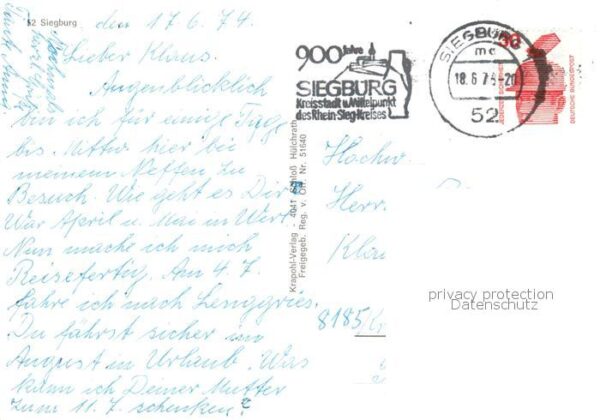 52 Siegburg
den 17.6.74.
Lieber Klaus.
Augenblicklich
bin ich für einige Tage
bis Mittw. hier bei
meinem Neffen zu
Besuch. Wie geht es Dir
War April u. Mai in Werl.
Nun mache ich mich
Reisefertig. Am 4.7.
fahre ich nach Lenggries.
Du fährst sicher im
August in Urlaub. Was
kann ich Deiner Mutter
zum 11.7. schenken?
Krapohl-Verlag - 4041 Schloß Hülchrath
Freigegeb. Reg. v. Obb. Nr. 51640
900 Jahre
SIEGBURG
Kreisstadt u. Mittelpunkt
des Rhein-Sieg-Kreises
SIEGBURG
mc
18.6.74-20
52
30
DEUTSCHE BUNDESPOST
Hochw.
Herr
Klau
8185
privacy protection
Datenschutz